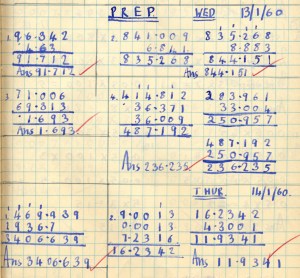 PREP WED 13/1/60
1. 96.342
4.63
91.712
Ans 91.712
2. 841.009
6.841
835.268
835.268
8.883
844.151
Ans 844.151
3. 71.006
69.313
1.693
Ans 1.693
4. 414.812
36.371
36.009
487.192
283.961
33.004
250.957
487.192
250.957
236.235
Ans 236.235
THUR. 14/1/60.
1. 1469.939
1936.7
3406.639
Ans 3406.639
2. 9.0013
0.0013
7.2316
16.2342
16.2342
4.3001
11.9341
Ans 11.9341